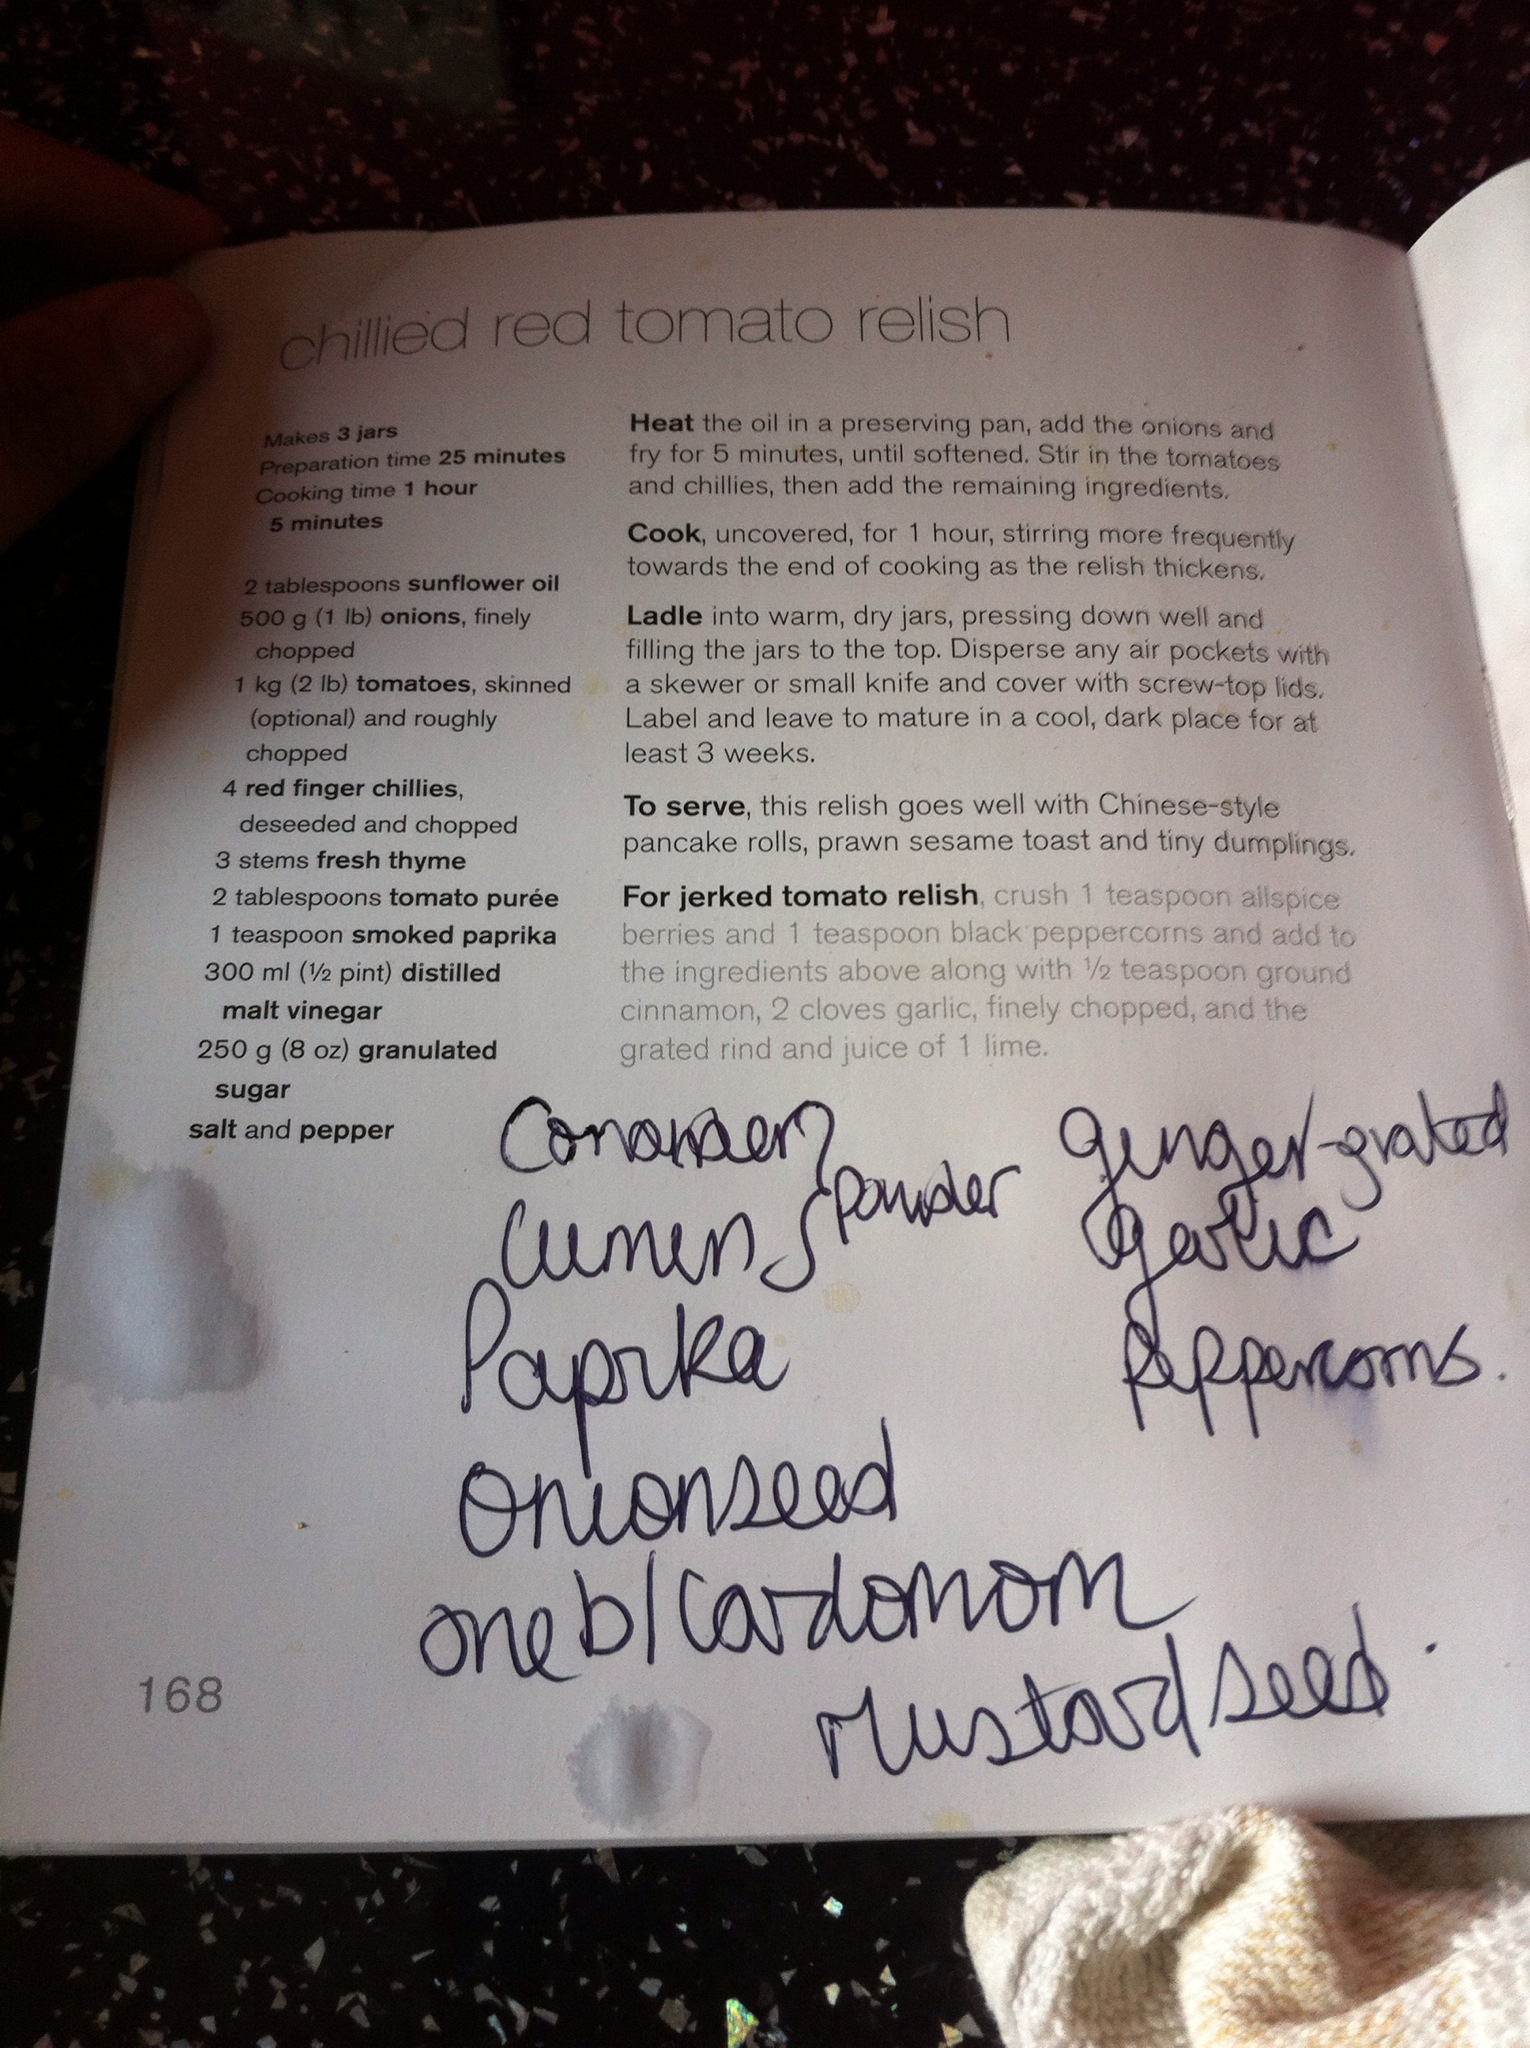 chillied red tomato relish
Makes 3 jars
Preparation time 25 minutes
Cooking time 1 hour
5 minutes
2 tablespoons sunflower oil
500 g (1 lb) onions, finely
chopped
1 kg (2 lb) tomatoes, skinned
(optional) and roughly
chopped
4 red finger chillies,
deseeded and chopped
3 stems fresh thyme
2 tablespoons tomato purée
1 teaspoon smoked paprika
300 ml (½ pint) distilled
malt vinegar
250 g (8 oz) granulated
sugar
salt and pepper
Heat the oil in a preserving pan, add the onions and
fry for 5 minutes, until softened. Stir in the tomatoes
and chillies, then add the remaining ingredients.
Cook, uncovered, for 1 hour, stirring more frequently
towards the end of cooking as the relish thickens.
Ladle into warm, dry jars, pressing down well and
filling the jars to the top. Disperse any air pockets with
a skewer or small knife and cover with screw-top lids.
Label and leave to mature in a cool, dark place for at
least 3 weeks.
To serve, this relish goes well with Chinese-style
pancake rolls, prawn sesame toast and tiny dumplings.
For jerked tomato relish, crush 1 teaspoon allspice
berries and 1 teaspoon black peppercorns and add to
the ingredients above along with ½ teaspoon ground
cinnamon, 2 cloves garlic, finely chopped, and the
grated rind and juice of 1 lime.
Coriander
Cumin
powder
Paprika
Onionseed
one bl Cardomom
Mustard seed.
Ginger-grated
Garlic
Peppercorns.
168